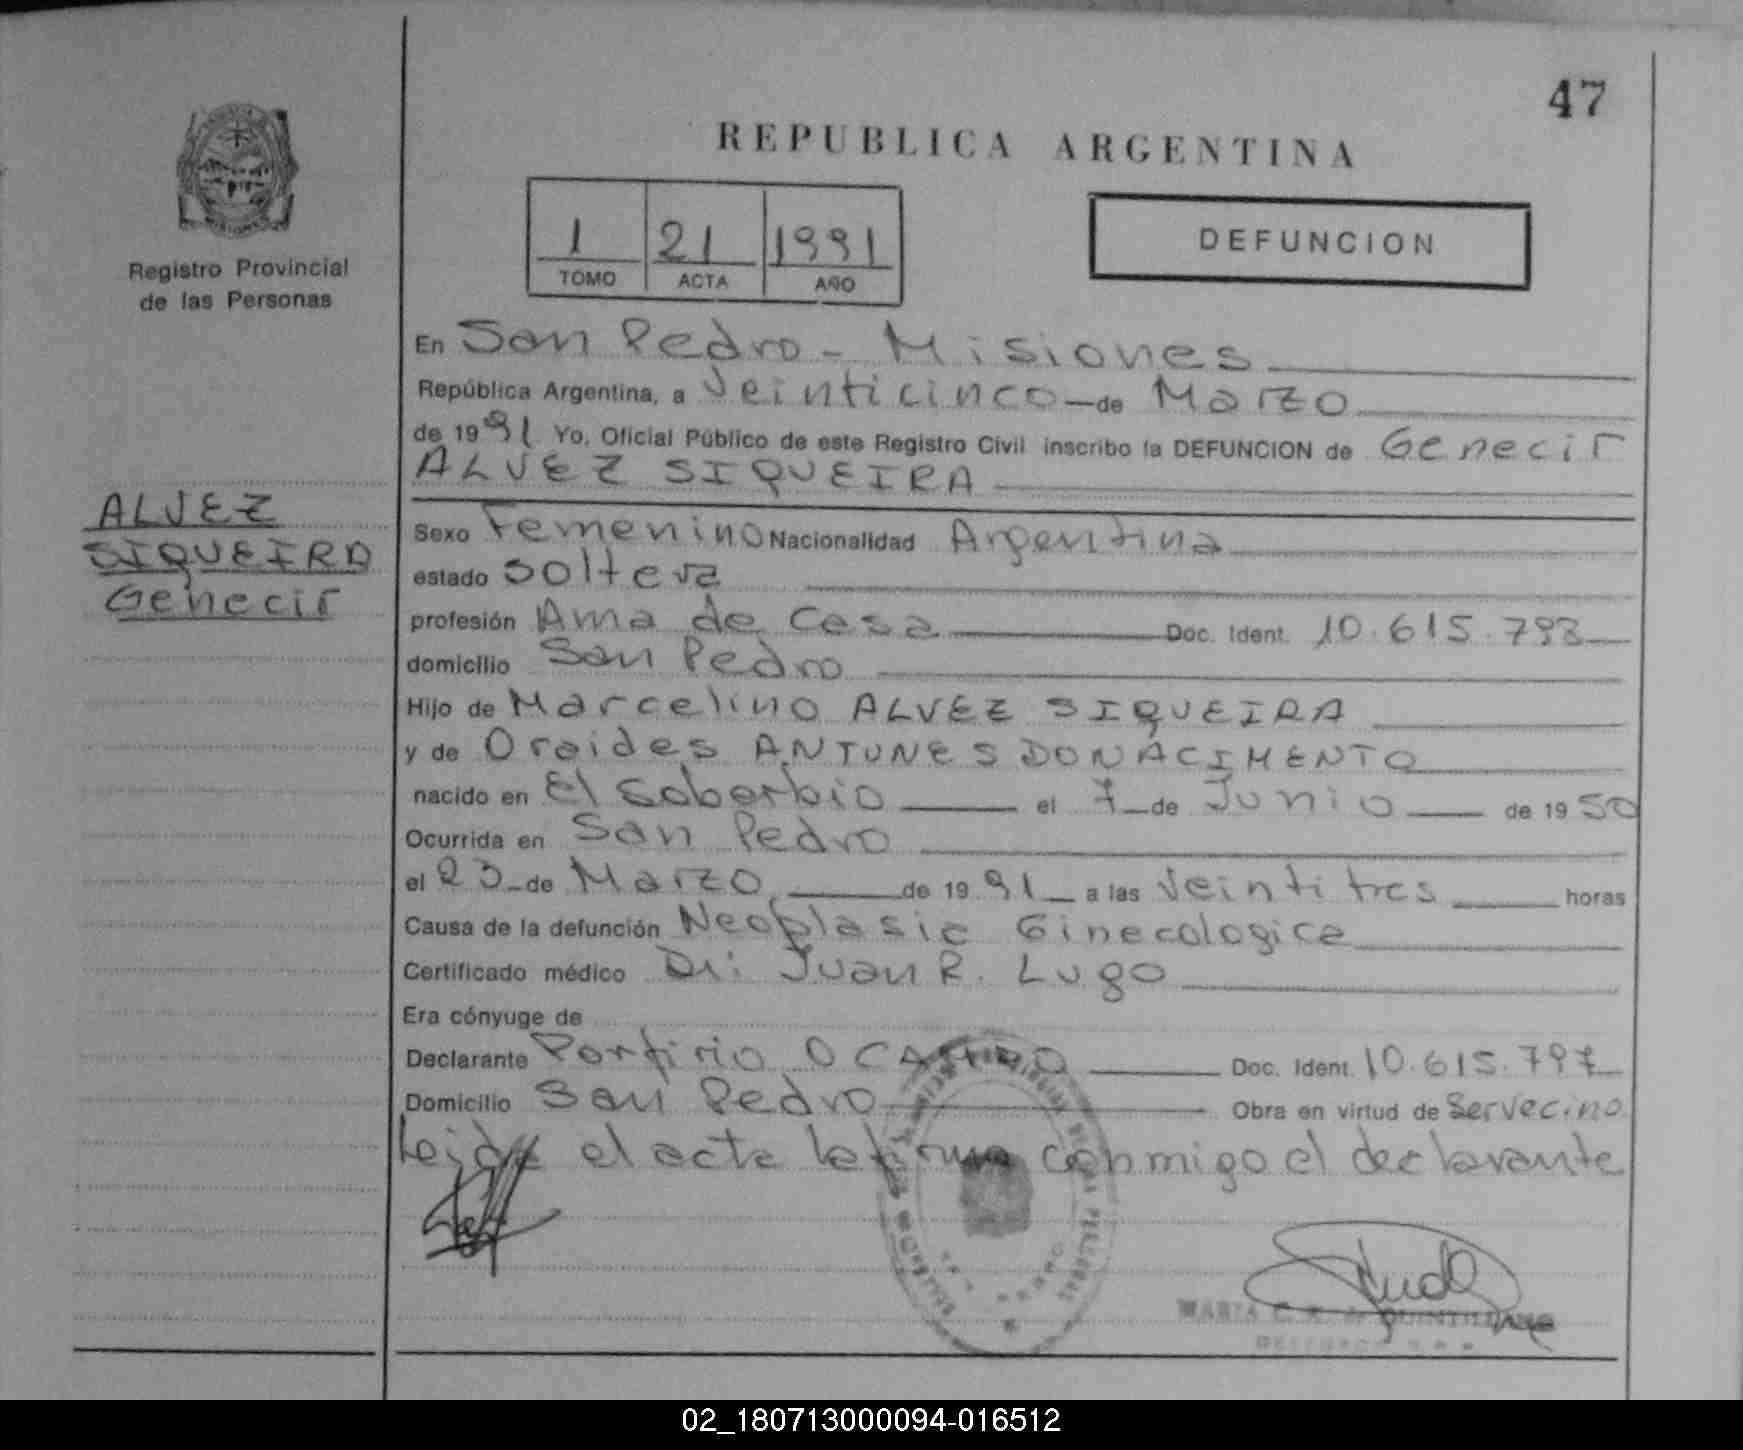 47
REPUBLICA ARGENTINA
1 21 1991
TOMO ACTA AÑO
DEFUNCION
Registro Provincial
de las Personas
ALVEZ
SIQUEIRA
Genecir
En San Pedro - Misiones
República Argentina, a Veinticinco de Marzo
de 1991 Yo, Oficial Público de este Registro Civil inscribo la DEFUNCION de Genecir
ALVEZ SIQUEIRA
Sexo Femenino Nacionalidad Argentina
estado soltera
profesión Ama de Casa Doc. Ident. 10.615.793
domicilio San Pedro
Hijo de Marcelino ALVEZ SIQUEIRA
y de Oraides ANTUNES DONACIMENTO
nacido en El Soberbio el 7 de Junio de 1950
Ocurrida en San Pedro
el 23 de Marzo de 1991 a las Veintitres horas
Causa de la defunción Neoplasia Ginecologica
Certificado médico Dr: Juan R. Lugo
Era cónyuge de
Declarante Porfirio Doc. Ident. 10.615.797
Domicilio San Pedro Obra en virtud de Ser vecino
Leida el acta la firma conmigo el declarante
MARIA
02_180713000094-016512